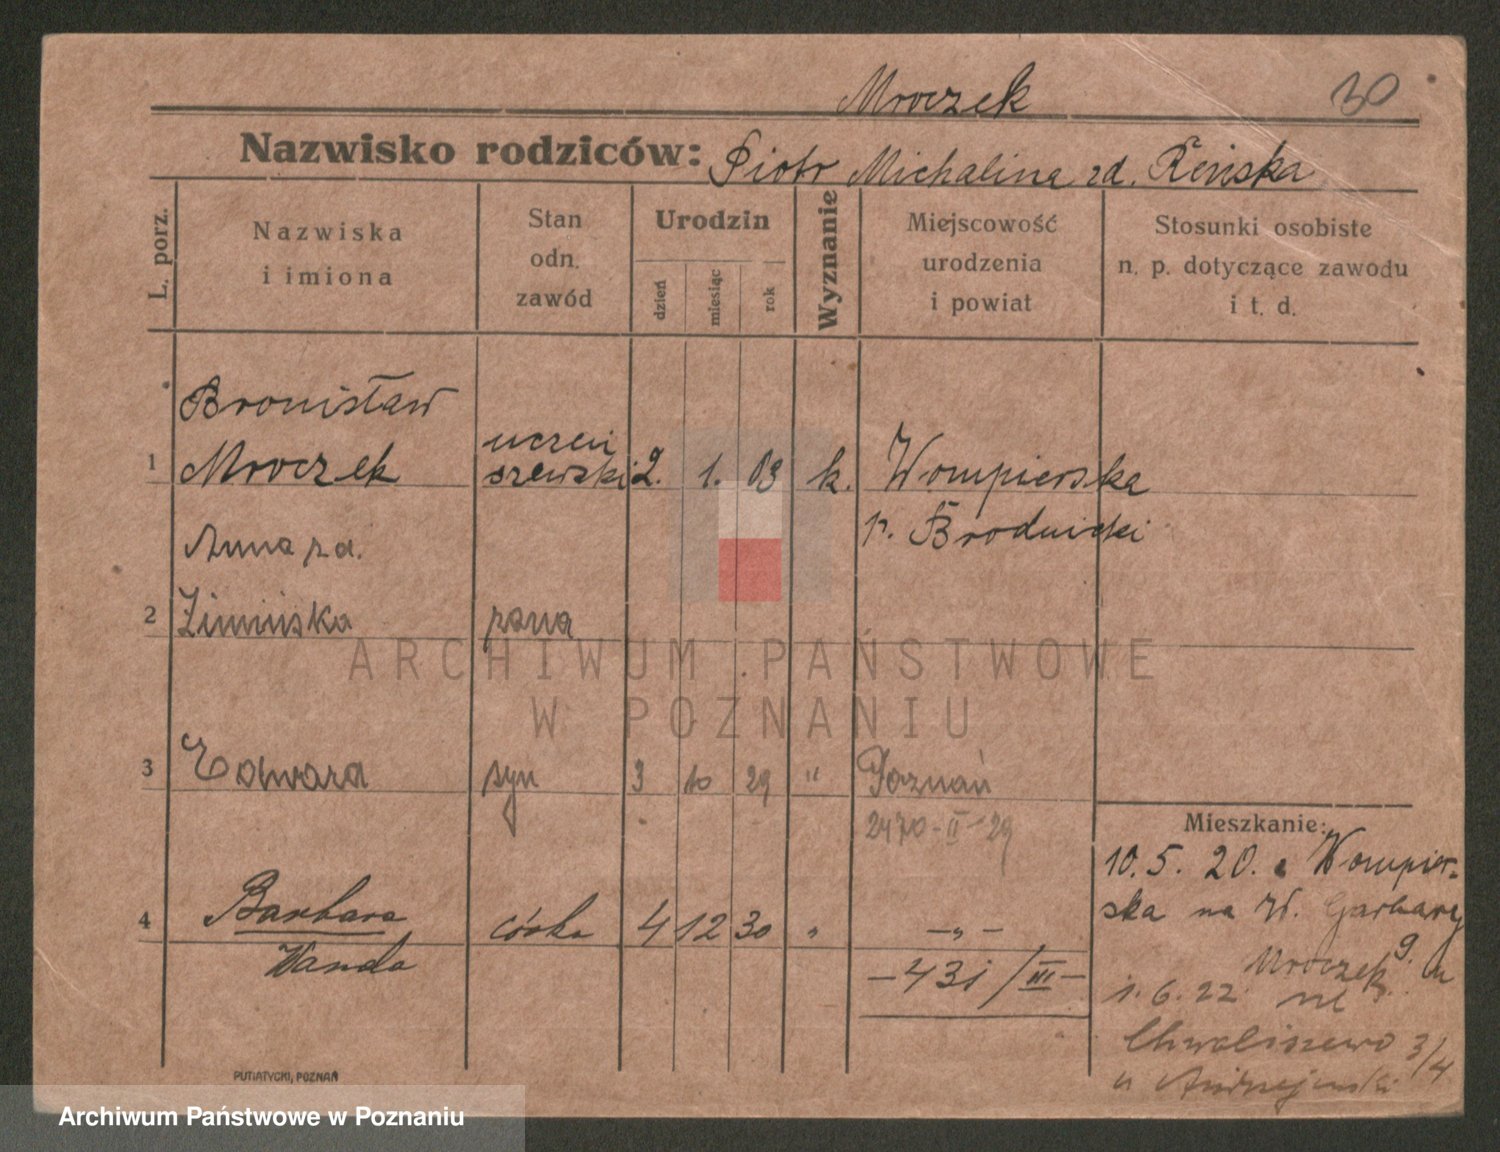 Mroczek 30
Nazwisko rodziców: Piotr Michalina zd. Reńska
L. porz.
Nazwiska
i imiona
Stan
odn.
zawód
Urodzin
dzień
miesiąc
rok
Wyznanie
Miejscowość
urodzenia
i powiat
Stosunki osobiste
n. p. dotyczące zawodu
i t. d.
Bronisław
1 Mroczek uczeń szewski 2. 1. 03 k. Wompierska
p. Brodnicki
Anna zd.
2 Zimińska żona
3 Edward syn 3 10 29 " Poznań
2470-II-29
4 Barbara córka 4 12 30 " -"-
Wanda
-431/III-
Mieszkanie:
10.5.20. Wompier-
ska na W. Garbary
9. u
Mroczek
1.6.22. na
Chwaliszewo 3/4
u Andrzejewski
PUTIATYCKI, POZNAŃ
ARCHIWUM PAŃSTWOWE
W POZNANIU
Archiwum Państwowe w Poznaniu